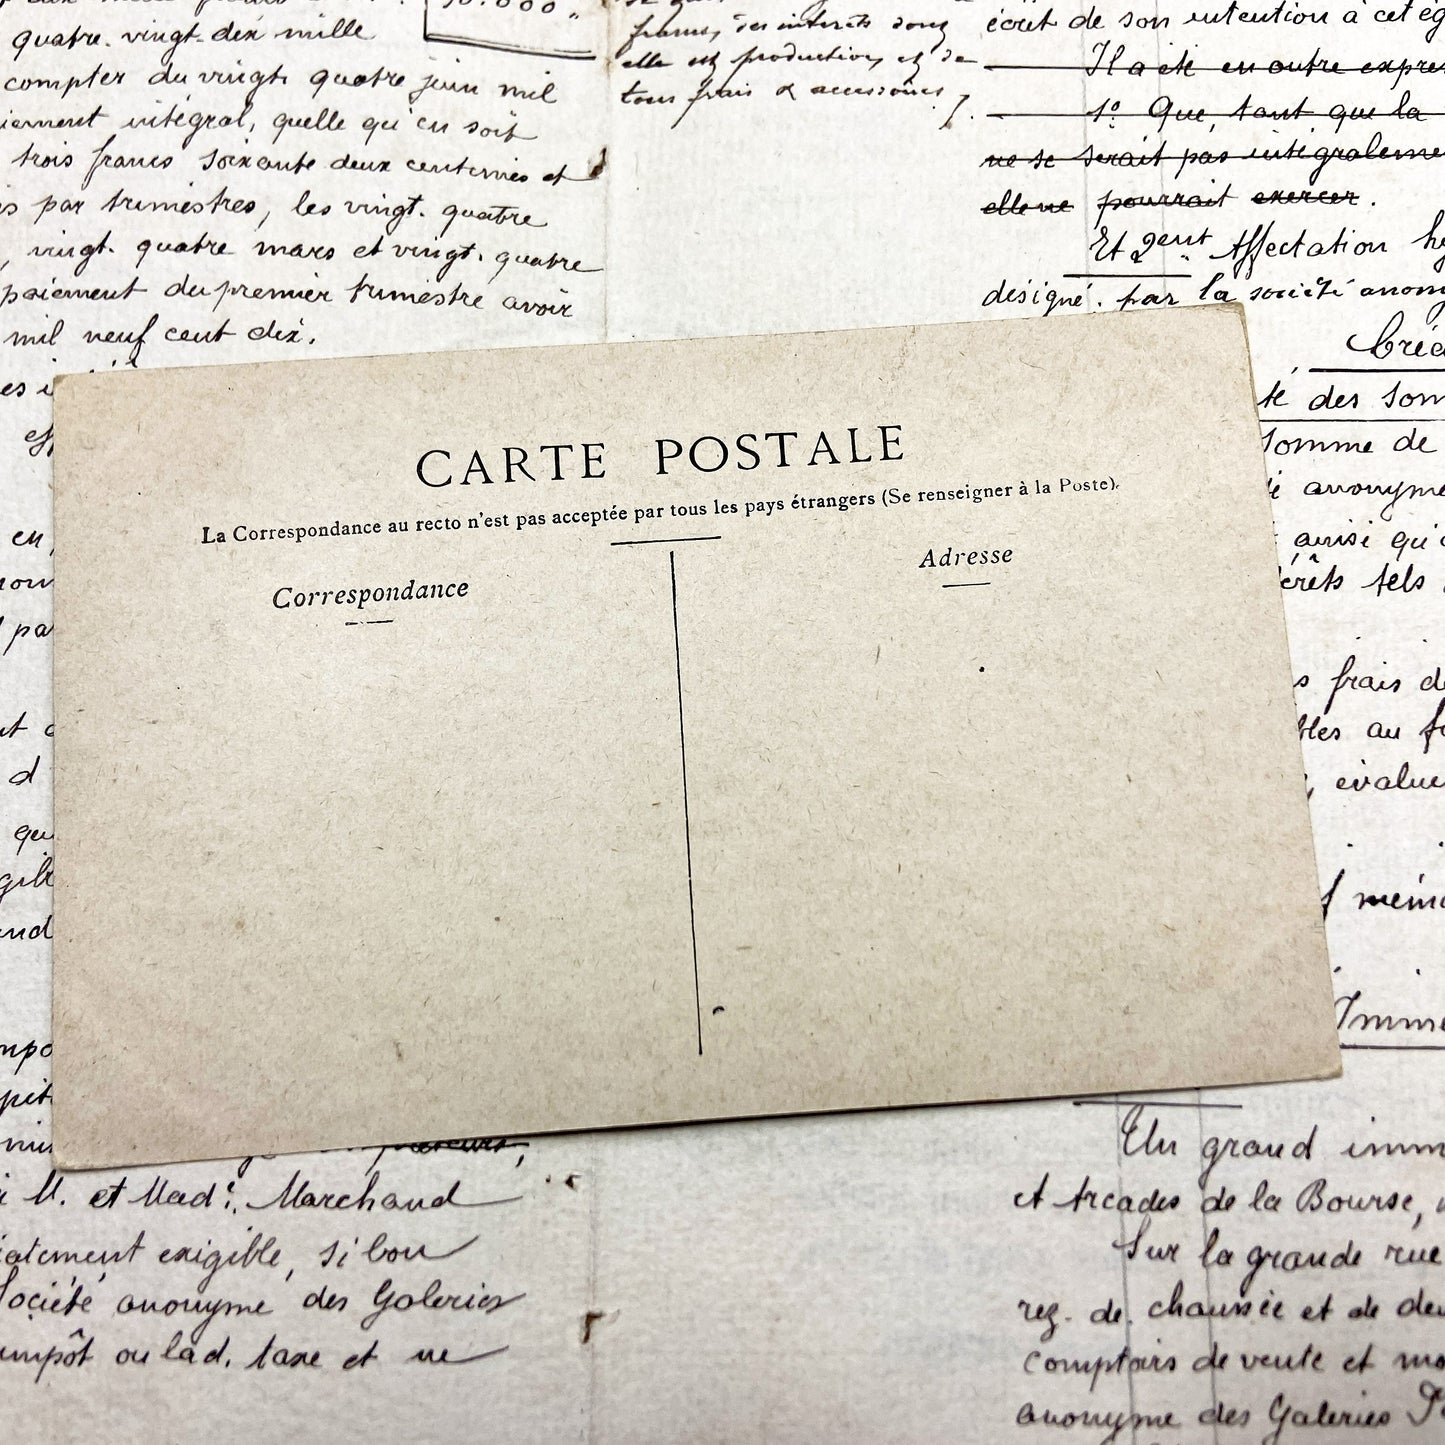 quatre. vingt-dix mille
compter du vingt. quatre juin mil
intégral, quelle qu'en soit
trois francs soixante deux centimes et
par trimestres, les vingt. quatre
, vingt. quatre mars et vingt. quatre
paiement du premier trimestre avoir
mil neuf cent dix.
50.000 "
francs, des interêts dont
elle est productive, et de
tous frais & accessoires,
écret de son intention à cet ég
Il a été en outre expres
1º Que, tant que la
ne se serait pas intégraleme
elle ne pourrait exercer.
Et 2ent Affectation hy
désigné. par la société anony
Créd
té des som
somme de
anonyme
ainsi qu'
érêts tels
s frais de
bles au f
, évalue
Imme
CARTE POSTALE
La Correspondance au recto n'est pas acceptée par tous les pays étrangers (Se renseigner à la Poste).
Correspondance
Adresse
en,
pa
d
qu
M. et Made. Marchand
exigible, si bon
Société anonyme des Galeries
impôt ou lad. taxe et ne
Un grand imm
et Arcades de la Bourse,
Sur la grande rue
rez. de. chaussée et de deu
comptoirs de vente et ma
anonyme des Galeries